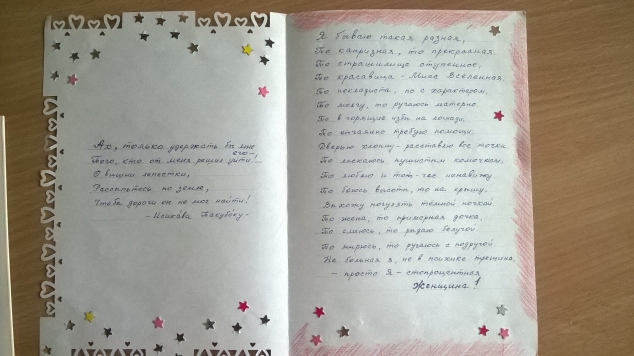 Ах, только удержать бы мне
Того, кто от меня решил уйти!..
его-
О вишни лепестки,
Рассыпьтесь по земле,
Чтобы дороги он не мог найти!
- Исикава Такубоку -
Я бываю такая разная,
То капризная, то прекрасная.
То страшилище отупенное,
То красавица - Мисс Вселенная.
То покладиста, то с характером,
То молчу, то ругаюсь матерно.
То в горящие избы на лошади,
То отчаянно требую помощи.
Дверью хлопну - расставлю все точки
То ласкаюсь пушистым комочком,
То люблю и тот-час ненавижу
То боюсь высоты, то на крышу.
Выхожу погулять темной ночкой.
То жена, то примерная дочка,
То смеюсь, то рыдаю белугой.
То мирюсь, то ругаюсь с подругой.
Не больная я, не в психике трещина,
- просто Я - стопроцентная
Женщина!